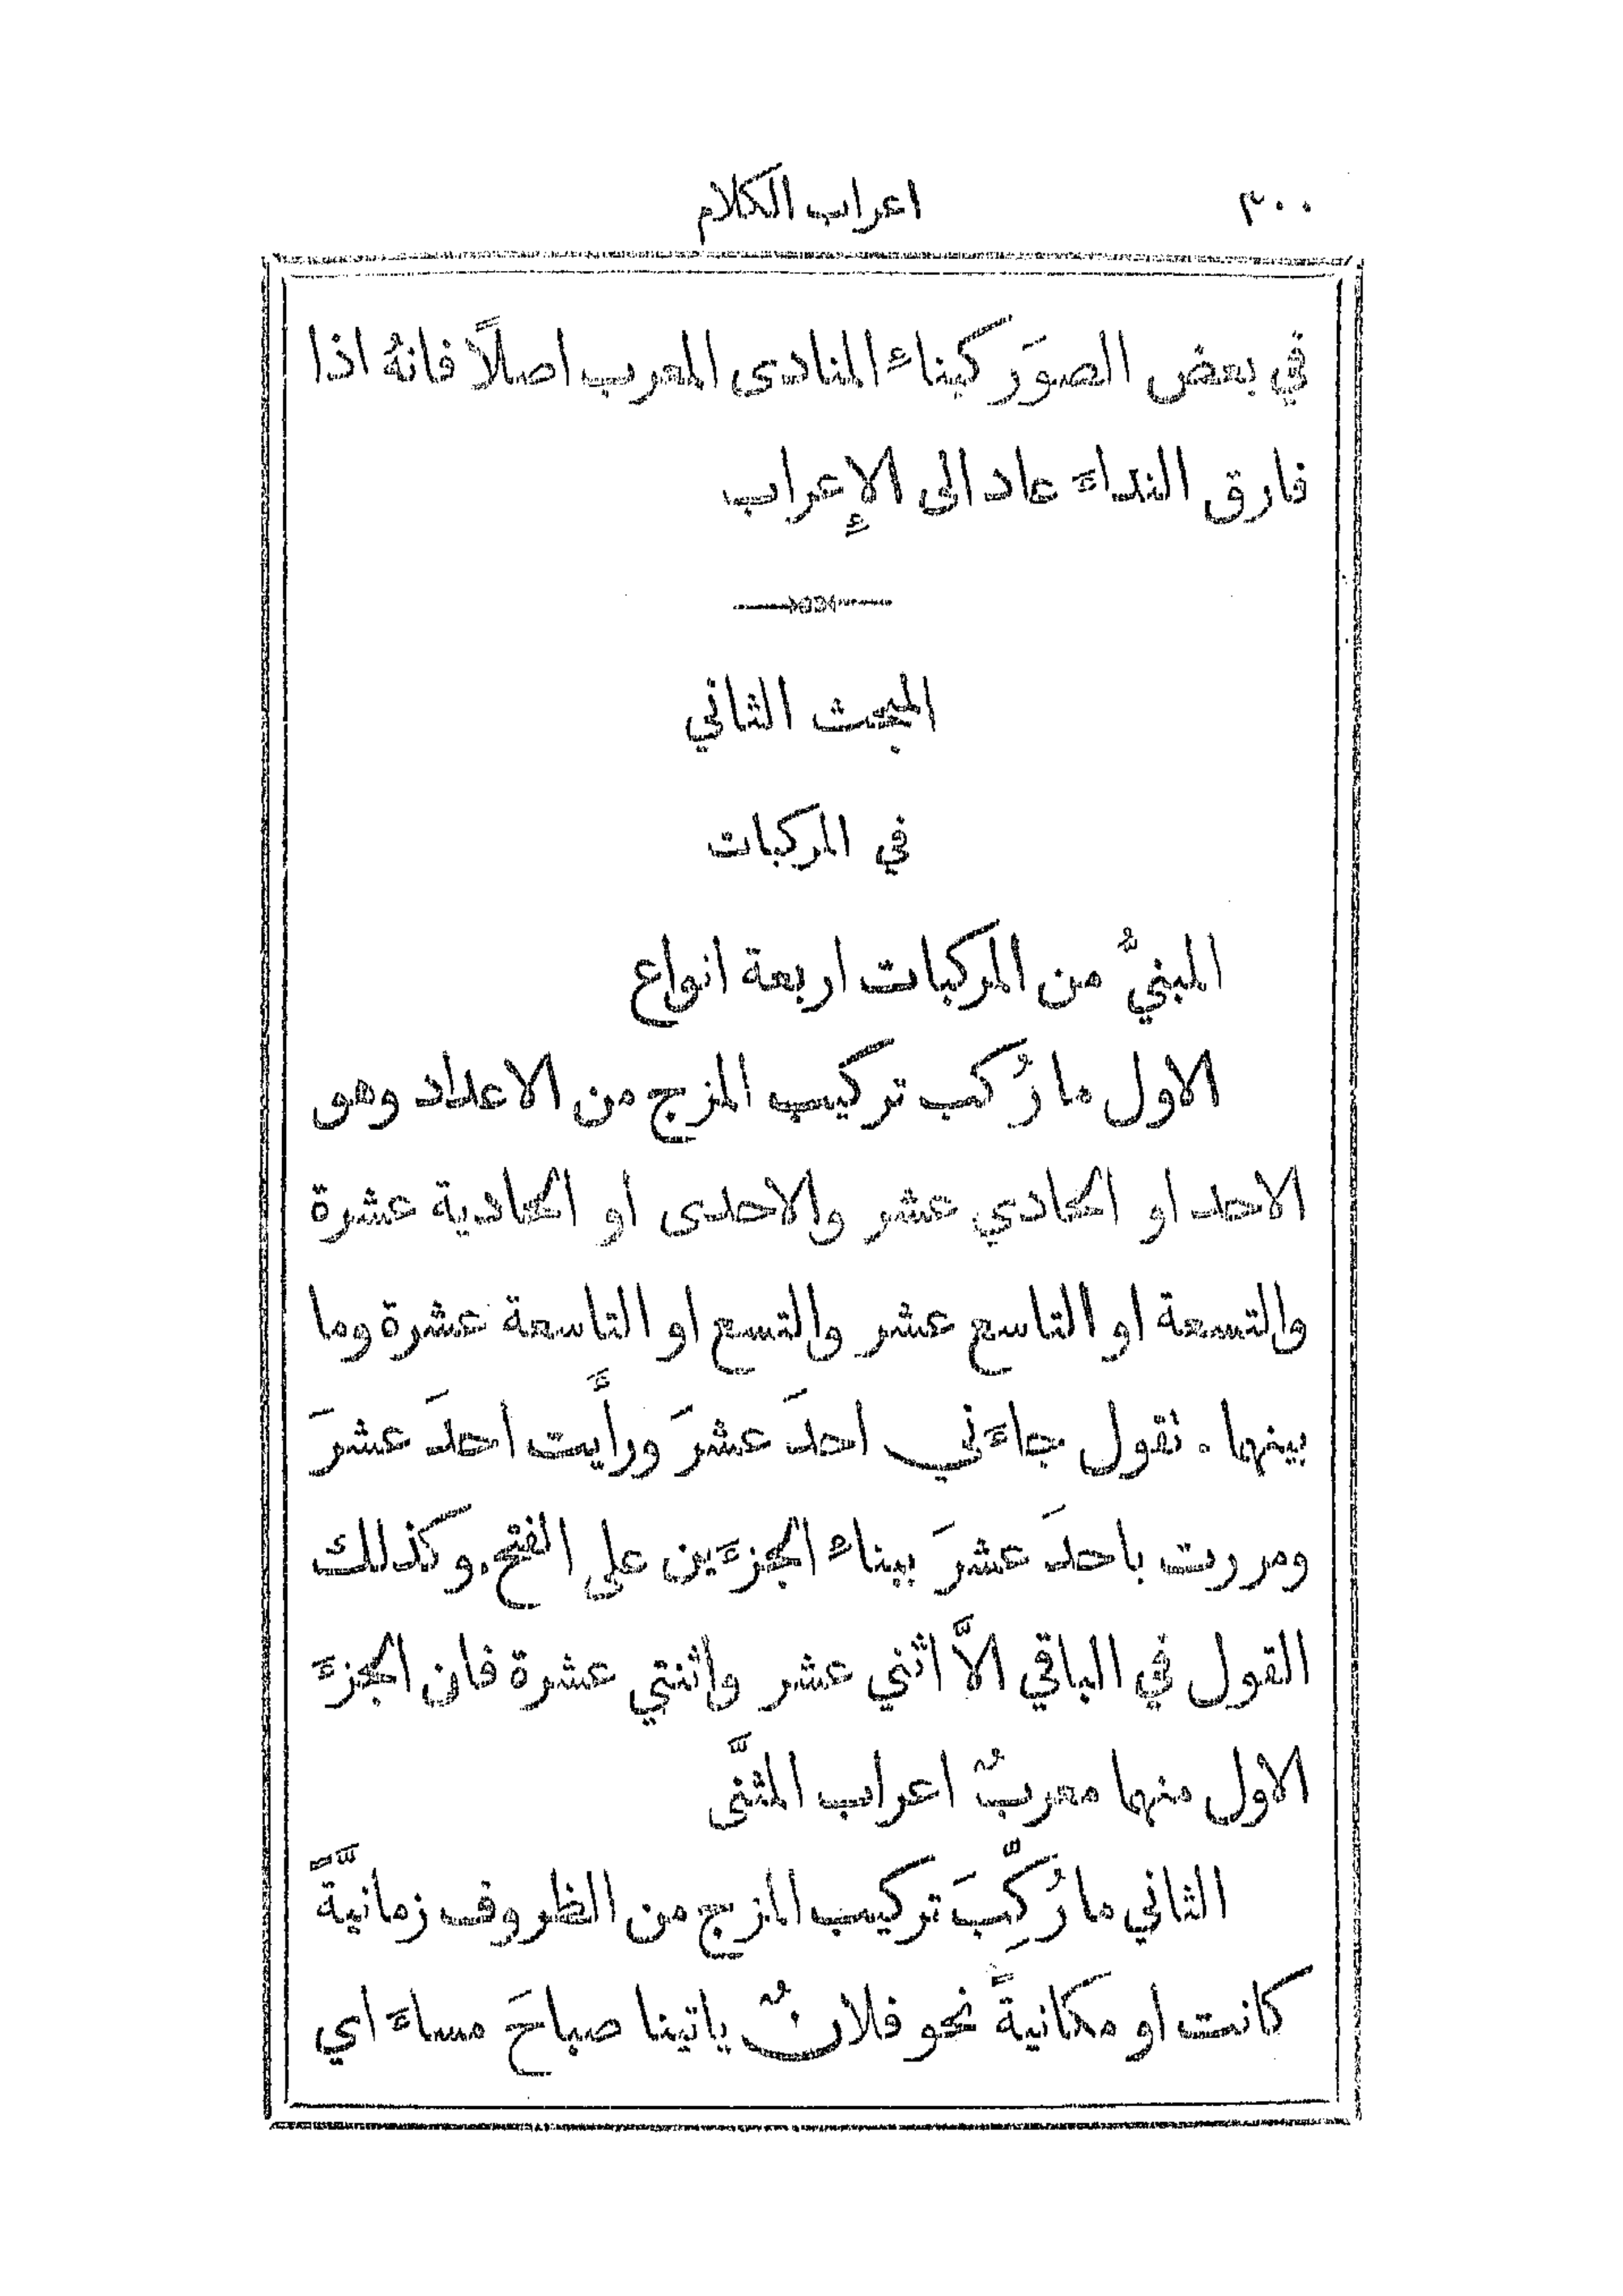 ٣٠٠ اعراب الكلام
في بعض الصوَر كبناء المنادى المعرب اصلاً فانهُ اذا
فارق النداءَ عاد الى الإعراب
المبحث الثاني
في المركبات
المبنيُّ من المركبات اربعة انواع
الاول ما رُكب تركيب المزج من الاعداد وهو
الاحد او الحادي عشر والاحدى او الحادية عشرة
والتسعة او التاسع عشر والتسع او التاسعة عشرة وما
بينهما . نقول جاءَني احدَ عشرَ ورأَيت احدَ عشرَ
ومررت باحدَ عشرَ ببناء الجزءَين على الفتح. وكذلك
القول في الباقي الاَّ اثني عشر واثنتي عشرة فان الجزءَ
الاول منهما معربٌ اعراب المثنَّى
الثاني ما رُكِّبَ تركيب المزج من الظروف زمانيَّةً
كانت او مكانيةً نحو فلانٌ ياتينا صباحَ مساءَ اي